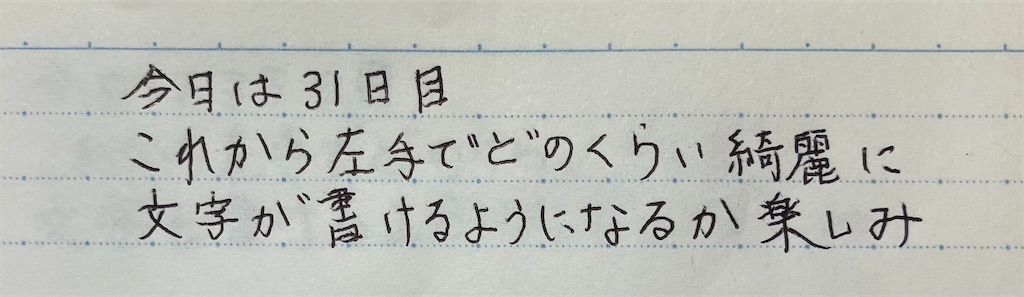 今日は31日目
これから左手でどのくらい綺麗に
文字が書けるようになるか楽しみ